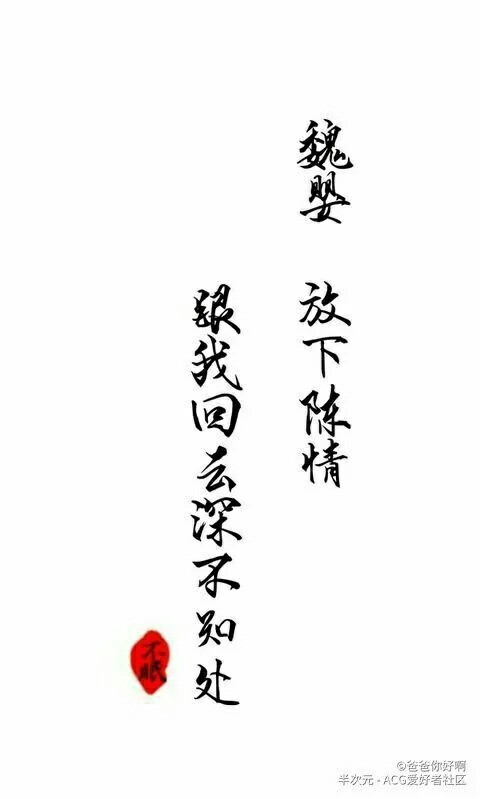 魏婴 放下陈情
跟我回云深不知处
不眠
©爸爸你好啊
半次元 - ACG爱好者社区